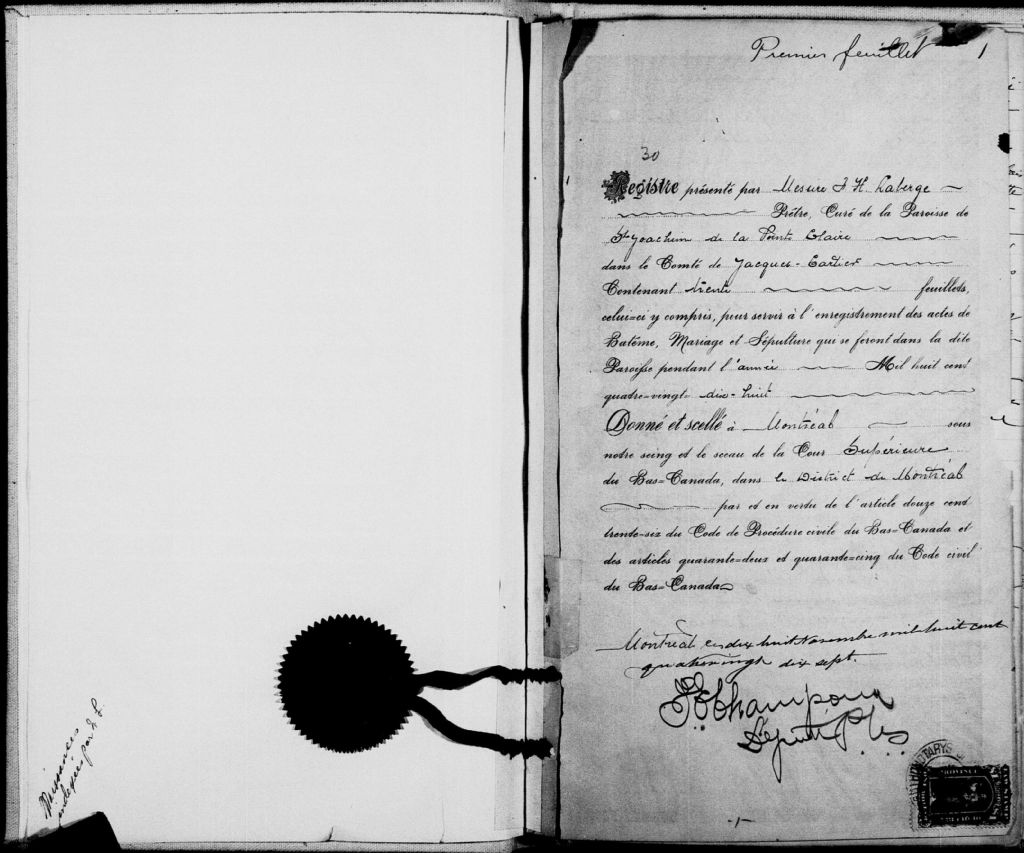 Naissances
indexées par
Premier feuillet 1
30
Registre présenté par Messire J. H. Laberge
Prêtre, Curé de la Paroisse de
St Joachim de la Pointe Claire
dans le Comté de Jacques-Cartier
Contenant trente feuillets,
celui=ci y compris, pour servir à l'enregistrement des actes de
Batême, Mariage et Sépulture qui se feront dans la dite
Paroisse pendant l'année Mil huit cent
quatre=vingt= dix-huit
Donné et scellé à Montréal sous
notre seing et le sceau de la Cour Supérieure
du Bas=Canada, dans le District de Montréal
par et en vertu de l'article douze cent
trente-six du Code de Procédure civile du Bas=Canada et
des articles quarante=deux et quarante=cinq du Code civil
du Bas=Canada
Montréal ce dix huit Novembre mil huit cent
quatrevingt dix sept.
Champoux
Député P
PROVINCE
-1-